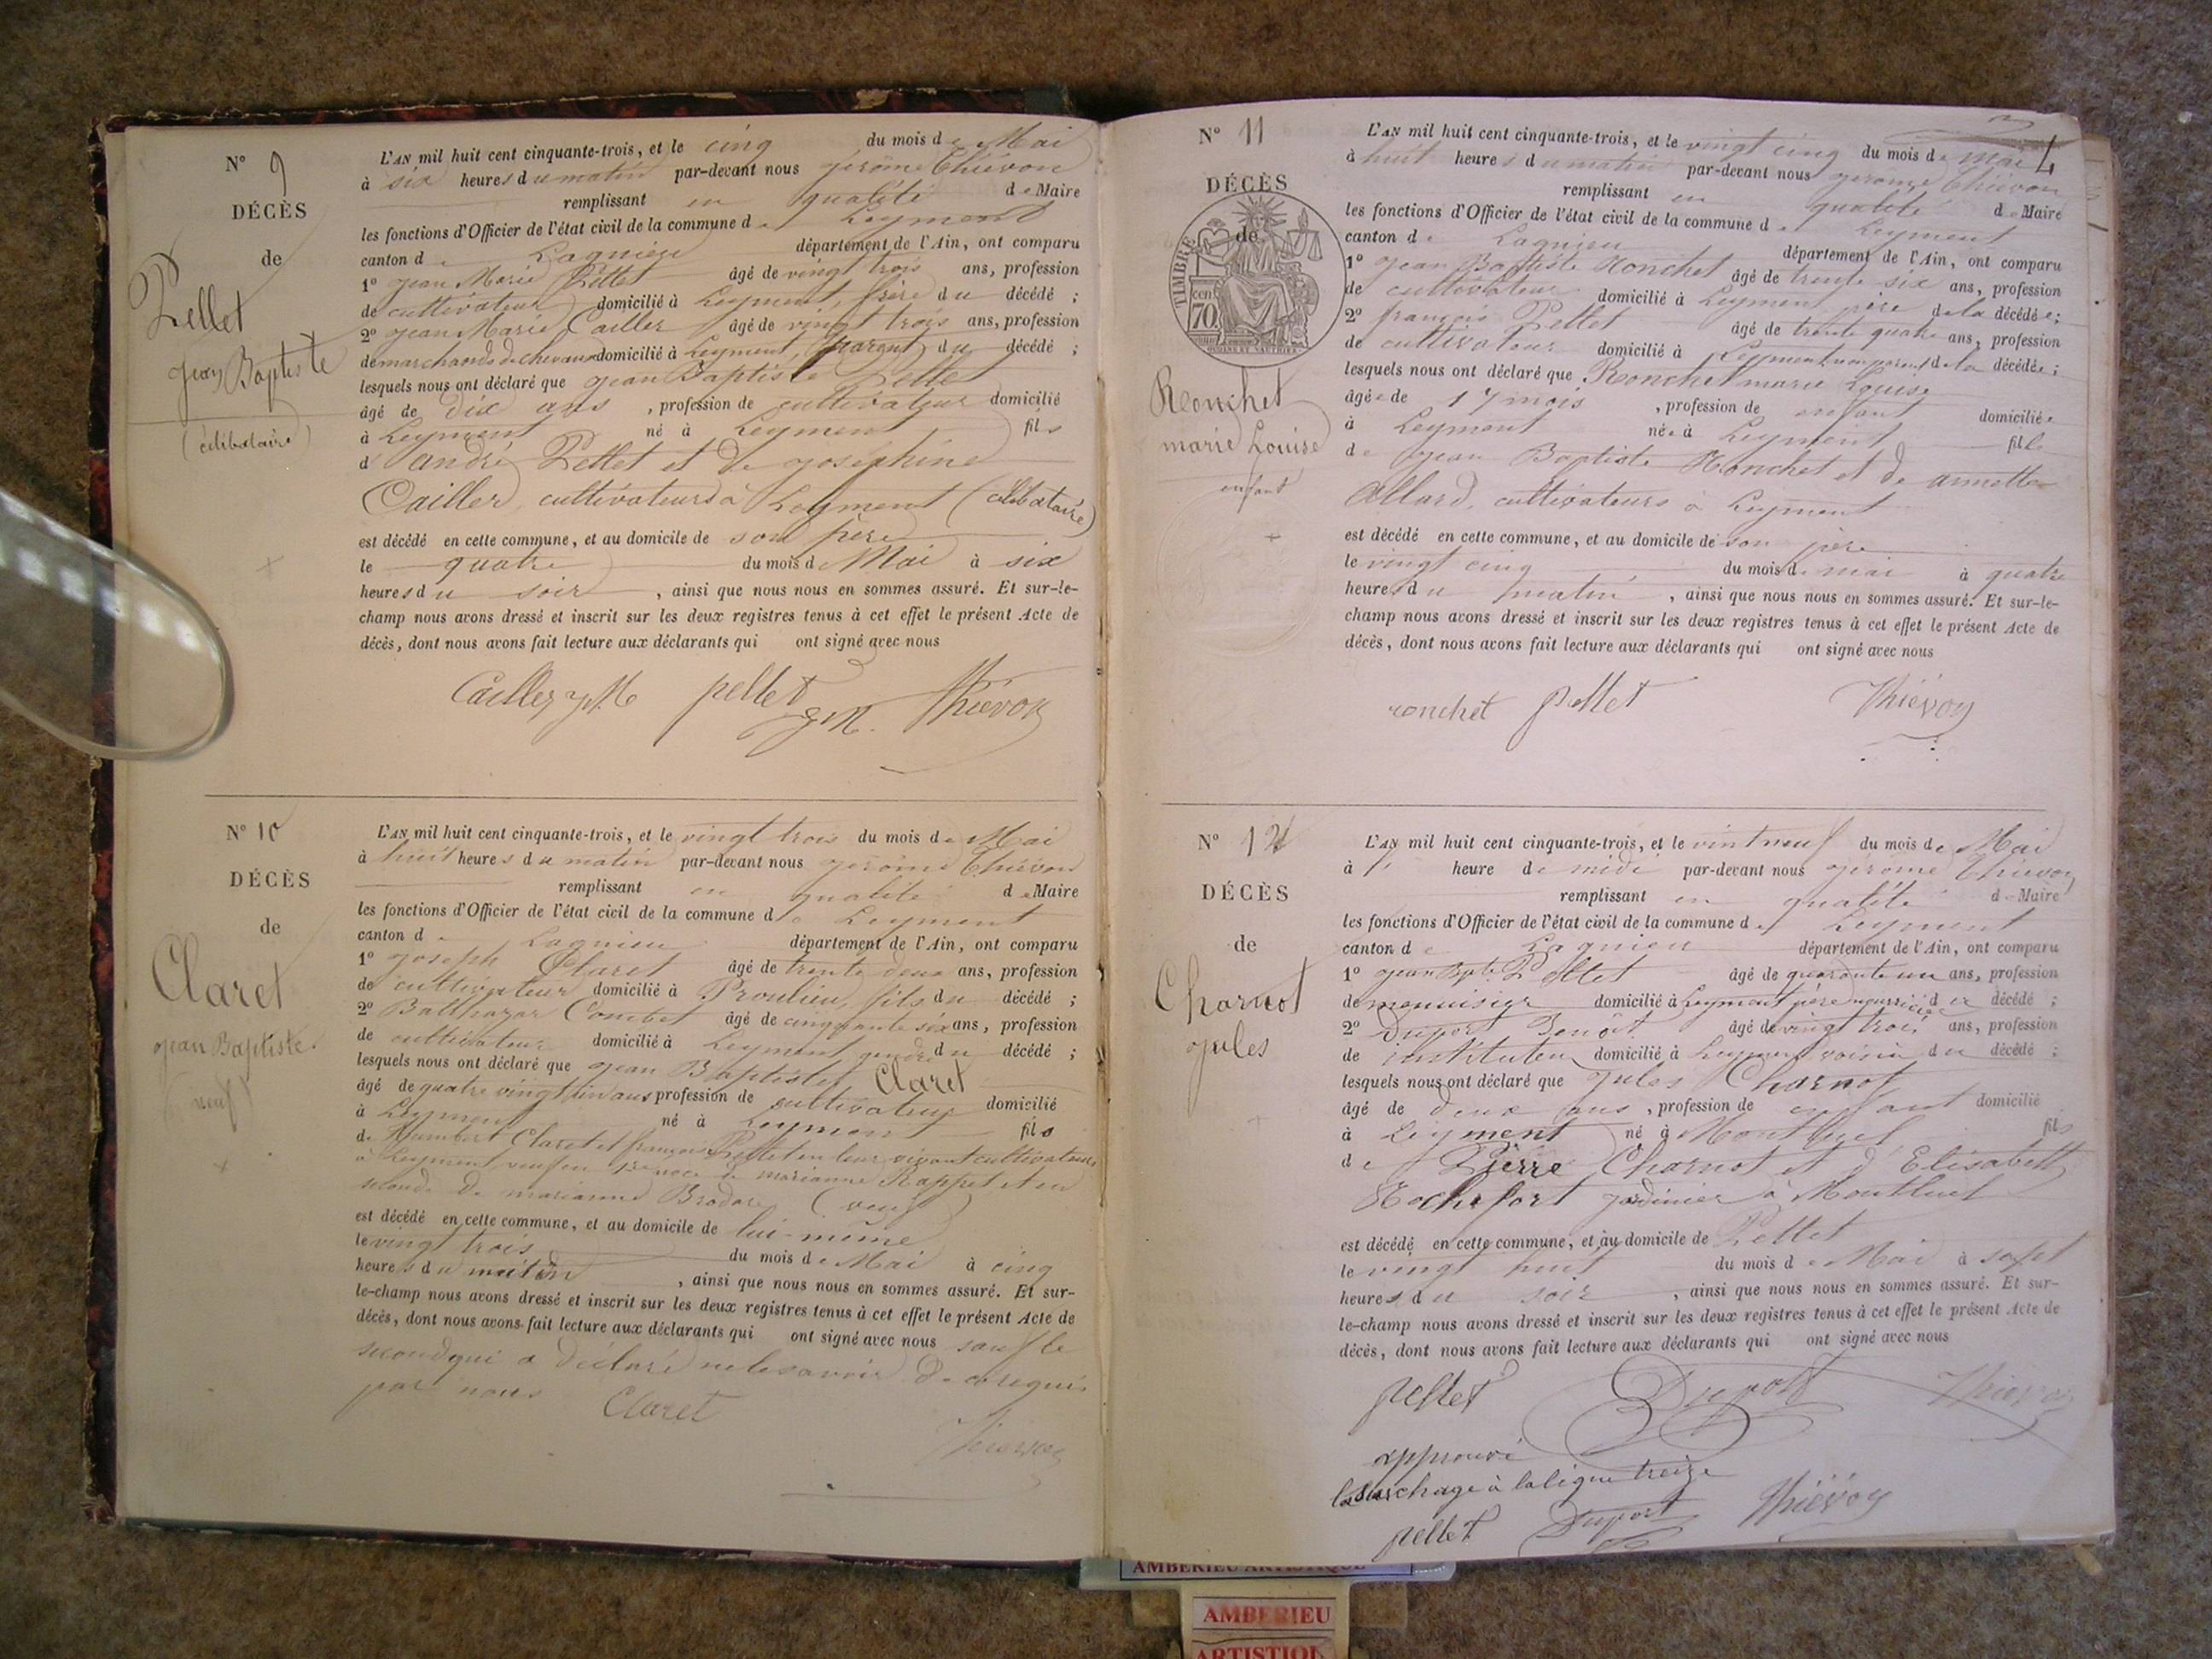 N° 9
DÉCÈS
de
Pellet
Jean Baptiste
(célibataire)
L'AN mil huit cent cinquante-trois, et le cinq du mois de Mai
à six heures du matin par-devant nous jérôme Thiévon
remplissant en qualité de Maire
les fonctions d'Officier de l'état civil de la commune de Leyment
canton de Lagnieu département de l'Ain, ont comparu
1° jean Marie Pellet âgé de vingt trois ans, profession
de cultivateur domicilié à Leyment, frère du décédé ;
2° jean Marie Cailler âgé de vingt trois ans, profession
de marchands de chevaux domicilié à Leyment, parent du décédé ;
lesquels nous ont déclaré que jean Baptiste Pellet
âgé de dix ans , profession de cultivateur domicilié
à Leyment né à Leyment fils
d'andré Pellet et de joséphine
Cailler, cultivateurs à Leyment (célibataire)
est décédé en cette commune, et au domicile de son père
le quatre du mois de Mai à six
heures du soir , ainsi que nous nous en sommes assuré. Et sur-le-
champ nous avons dressé et inscrit sur les deux registres tenus à cet effet le présent Acte de
décès, dont nous avons fait lecture aux déclarants qui ont signé avec nous
Cailler J M pellet J M. Thiévon
N° 10
DÉCÈS
de
Claret
jean Baptiste
veuf
L'AN mil huit cent cinquante-trois, et le vingt trois du mois de Mai
à huit heures du matin par-devant nous jérôme Thiévon
remplissant en qualité de Maire
les fonctions d'Officier de l'état civil de la commune de Leyment
canton de Lagnieu département de l'Ain, ont comparu
1° joseph Claret âgé de trente deux ans, profession
de cultivateur domicilié à Proulieu, fils du décédé ;
2° Balthazar Combet âgé de cinquante six ans, profession
de cultivateur domicilié à Leyment gendre du décédé ;
lesquels nous ont déclaré que jean Baptiste Claret
âgé de quatre vingt un ans profession de cultivateur domicilié
à Leyment né à Leyment fils
de Humbert Claret et françoise Pellet en leur vivant cultivateurs
à Leyment, veuf en 1re noce de marianne Rappet et en
seconde de marianne Brodare (veuf)
est décédé en cette commune, et au domicile de lui-même
le vingt trois du mois de Mai à cinq
heures du matin , ainsi que nous nous en sommes assuré. Et sur-
le-champ nous avons dressé et inscrit sur les deux registres tenus à cet effet le présent Acte de
décès, dont nous avons fait lecture aux déclarants qui ont signé avec nous sauf le
second qui a déclaré ne le savoir de ce requis
par nous Claret
Thiévon
4
N° 11
DÉCÈS
de
TIMBRE
cen.
70
Ronchet
marie Louise
enfant
L'AN mil huit cent cinquante-trois, et le vingt cinq du mois de mai
à huit heures du matin par-devant nous jérome Thiévon
remplissant en qualité de Maire
les fonctions d'Officier de l'état civil de la commune de Leyment
canton de Lagnieu département de l'Ain, ont comparu
1° jean Baptiste Ronchet âgé de trente six ans, profession
de cultivateur domicilié à Leyment père de la décédée ;
2° françois Pellet âgé de trente quatre ans, profession
de cultivateur domicilié à Leyment non parent de la décédée ;
lesquels nous ont déclaré que Ronchet marie Louise
âgée de 17 mois , profession de enfant domiciliée
à Leyment née à Leyment fille
de jean Baptiste Ronchet et de annette
Allard, cultivateurs à Leyment
est décédé en cette commune, et au domicile de son père
le vingt cinq du mois de mai à quatre
heures du matin , ainsi que nous nous en sommes assuré. Et sur-le-
champ nous avons dressé et inscrit sur les deux registres tenus à cet effet le présent Acte de
décès, dont nous avons fait lecture aux déclarants qui ont signé avec nous
ronchet pellet Thiévon
N° 12
DÉCÈS
de
Charnot
jules
L'AN mil huit cent cinquante-trois, et le vint neuf du mois de Mai
à 1 heure de midi par-devant nous jérome Thiévon
remplissant en qualité de Maire
les fonctions d'Officier de l'état civil de la commune de Leyment
canton de Lagnieu département de l'Ain, ont comparu
1° jean Bpte Pellet âgé de quarante un ans, profession
de menuisier domicilié à Leyment père nourricier du décédé ;
2° Duport Benoit âgé de vingt trois ans, profession
de instituteur domicilié à Leyment voisin du décédé ;
lesquels nous ont déclaré que jules Charnot
âgé de deux ans , profession de enfant domicilié
à Leyment né à Montluel fils
de Pierre Charnot et d'Elisabeth
Rochefort jardinier à Montluel
est décédé en cette commune, et au domicile de Pellet
le vingt huit du mois de Mai à sept
heures du soir , ainsi que nous nous en sommes assuré. Et sur-
le-champ nous avons dressé et inscrit sur les deux registres tenus à cet effet le présent Acte de
décès, dont nous avons fait lecture aux déclarants qui ont signé avec nous
pellet Duport Thiévon
approuvé
la surchage à la ligne treize
pellet Duport Thiévon
AMBERIEU ARTISTIQUE
AMBERIEU